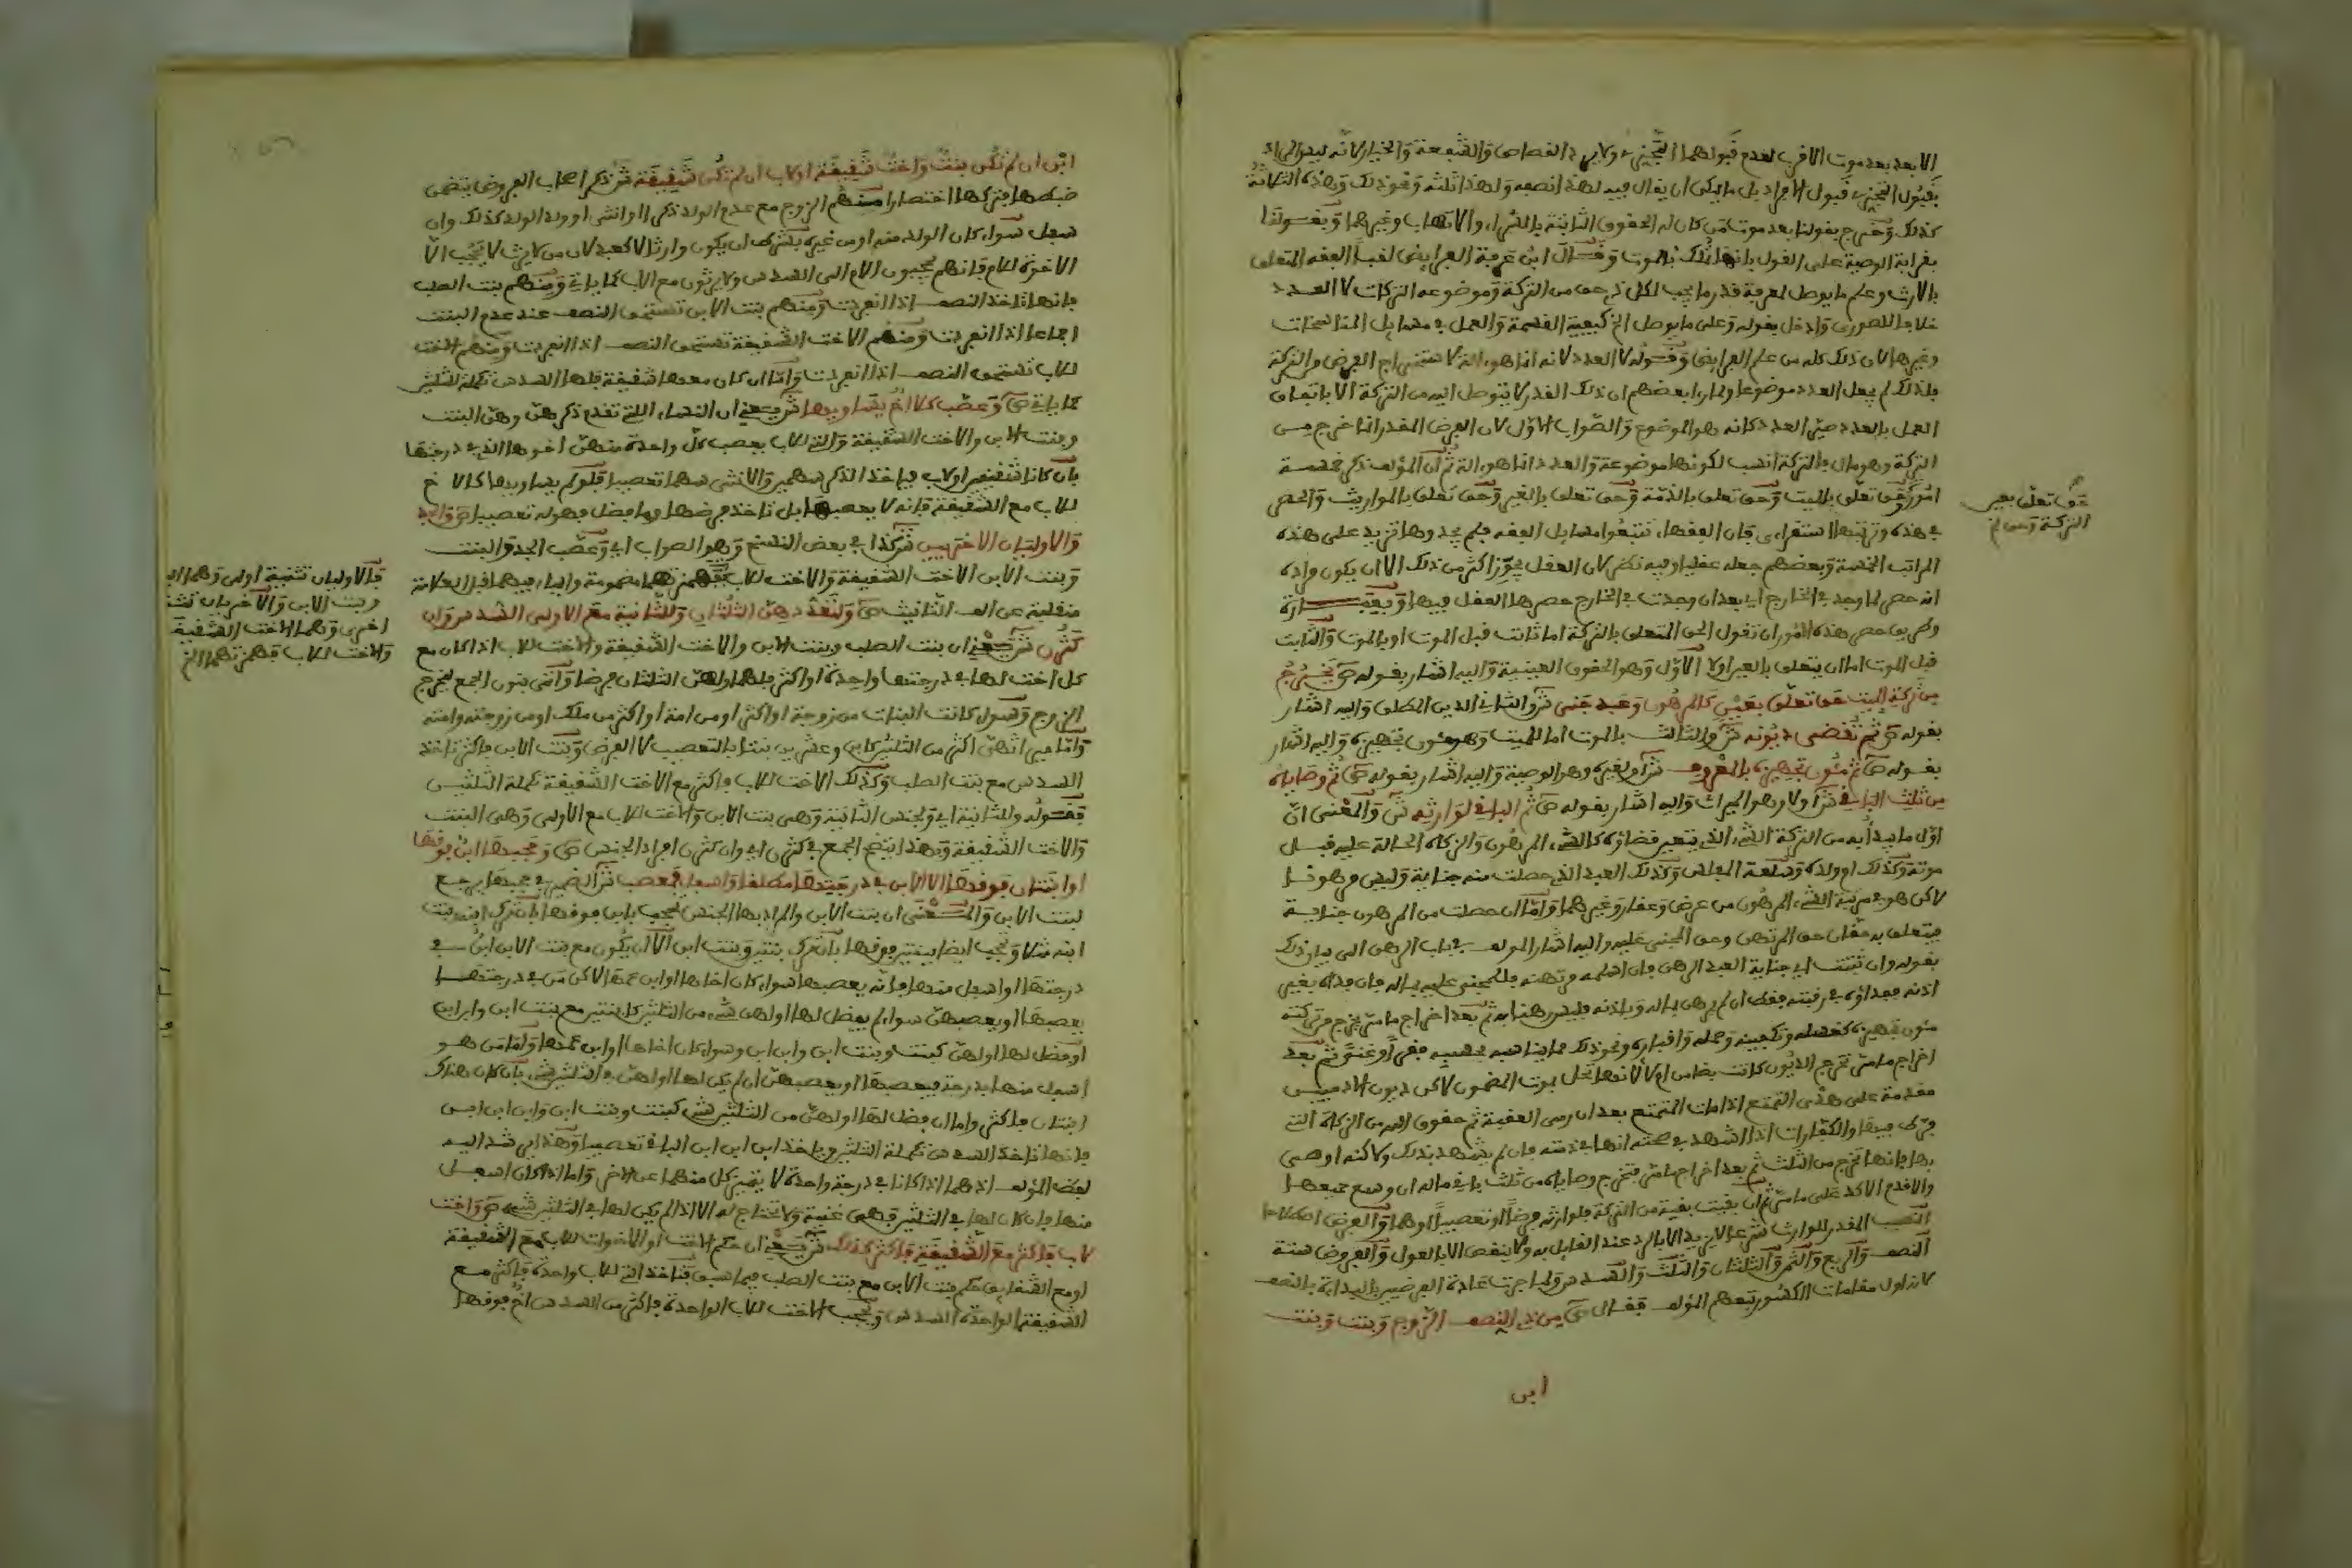 الابعد بعد موت الاقرب لعدم قبولهما التجزئ ولا يرد القصاص والشفعة والخيار لانه ليس المراد
بقبول التجزئ قبول الافراد بل ما يمكن ان يقال فيه لهذا نصفه ولهذا ثلثه ونحو ذلك وهذه الثلاثة
كذلك وخرج بقولنا بعد موت من كان له الحقوق الثابتة بالشراء والاتهاب وغيرهما وبقولنا
بقرابة الوصية على القول بانها تملك بالموت وقال ابن عرفة الفرايض لقبا الفقه المتعلق
بالارث وعلم ما يوصل لمعرفة قدر ما يجب لكل ذي حق من التركة وموضوعه التركات لا العدد
خلافا للصوري وادخل بقوله وعلم ما يوصل الخ كيفية القسمة والعمل في مسايل المناسخات
وغيرها لان ذلك كله من علم الفرايض وقوله لا العدد لانه انما هو الة لاستخراج الفرض من التركة
فلذلك لم يجعل العدد موضوعا ولما راى بعضهم ان ذلك القدر لا يتوصل اليه من التركة الا باتقان
العمل بالعدد صير العدد كانه هو الموضوع والصواب الاول لان الفرض المقدر انما خرج من
التركة وهو مال فالتركة انسب لكونها موضوعة والعدد انما هو الة ثم ان المؤلف ذكر خمسة
امور حق تعلق بالميت وحق تعلق بالذمة وحق تعلق بالغير وحق تعلق بالموارث والحصر
في هذه وترتيبها استقراءى فان الفقهاء تتبعوا مسايل الفقه فلم يجدوها تزيد على هذه
المراتب الخمسة وبعضهم جعله عقليا وفيه نظر لان العقل يجوز اكثر من ذلك الا ان يكون مراده
انه حصر لما وجد في الخارج اي بعد ان وجدت في الخارج حصرها العقل فيها وبعبارة
وطريق حصر هذه الامور ان تقول الحق المتعلق بالتركة اما ثابت قبل الموت او بالموت والثابت
قبل الموت اما ان يتعلق بالعين اولا الاول وهو الحقوق العينية واليه اشار بقوله ص يخرج
من تركة الميت حق تعلق بعين كالمرهون وعبد جنى ش والثاني الدين المطلق واليه اشار
بقوله ص ثم تقضى ديونه ش والثالث بالموت اما للميت وهو مئون تجهيزه واليه اشار
بقوله ص ثم مئون تجهيزه بالمعروف ش او لغيره وهو الوصية واليه اشار بقوله ص ثم وصاياه
من ثلث الباقي ش اولا وهو الميراث واليه اشار بقوله ص ثم الباقي لوارثه ش والمعنى ان
اول ما يبدأ به من التركة الشيء الذي يتعين قضاؤه كالشيء المرهون والزكاة الحالة عليه قبل
موته وكذلك ام ولده وسلعة المفلس وكذلك العبد الذي حصلت منه جناية وليس مرهونا
لاكن هو في مرتبة الشيء المرهون من عرض وعقار وغيرهما واما ان حصلت من المرهون جناية
فيتعلق به حقان حق المرتهن وحق المجني عليه واليه اشار المؤلف في باب الرهن الى بيان ذلك
بقوله وان ثبتت اي جناية العبد الرهن فان اسلمه مرتهنه فللمجني عليه بماله فان فداه بغير
اذنه ففداؤه في رقبته فقط ان لم يرهن بماله وباذنه فليس رهنا به ثم بعد اخراج ما مر يخرج من تركته
مئون تجهيزه كغسله وتكفينه وحمله واقباره ونحو ذلك مما يناسبه بحسبه فقرا وغنى ثم بعد
اخراج ما مر تخرج الديون كانت بضامن ام لا لانها تحل بموت المضمون لاكن ديون الادميين
مقدمة على هدى التمتع اذا مات المتمتع بعد ان رمى العقبة ثم حقوق الله من الزكاة التي
فرط فيها والكفارات اذا اشهد في صحته انها في ذمته فان لم يشهد بذلك ولاكنه اوصى
بها فانها تخرج من الثلث ثم بعد اخراج ما مر تخرج وصاياه من ثلث باقي ماله ان وسع جميعها
والاقدم الاكد على ما مر ثم ان بقيت بقية من التركة فلوارثه فرضا او تعصيبا او هما والفرض اصطلاحا
النصيب المقدر للوارث شرعا لا يزيد الا بالرد عند القايل به ولا ينقص الا بالعول والفروض ستة
النصف والربع والثمن والثلثان والثلث والسدس ولما جرت عادة الفرضيين بالبداءة بالنصف
لانه اول مقامات الكسور تبعهم المؤلف فقال ص من ذي النصف الزوج وبنت وبنت
ابن
حق تعلق بعين
التركة وحق
ابن ان لم تكن بنت واخت شقيقة او لاب ان لم تكن شقيقة ش ذكر اصحاب الفروض يتضمن
ضبطها فتركها اختصارا منهم الزوج مع عدم الولد ذكرا او انثى او ولد الولد كذلك وان
سفل سواء كان الولد منه او من غيره بشرط ان يكون وارثا لا كعبد لان من لا يرث لا يحجب الا
الاخوة للام فانهم يحجبون الام الى السدس ولا يرثون مع الاب كما ياتي ومنهم بنت الصلب
فانها تاخذ النصف اذا انفردت ومنهم بنت الابن تستحق النصف عند عدم البنت
اجماعا اذا انفردت ومنهم الاخت الشقيقة تستحق النصف اذا انفردت ومنهم الاخت
للاب تستحق النصف اذا انفردت واما ان كان معها شقيقة فلها السدس تكملة للثلثين
كما ياتي ص وعصب كلا اخ يساويها ش يعني ان النساء اللتي تقدم ذكرهن وهن البنت
وبنت الابن والاخت الشقيقة والتي للاب يعصب كل واحدة منهن اخوها الذي في درجتها
بان كانا شقيقين او لاب فياخذ الذكر سهمين والانثى سهما تعصيبا فلو لم يساويها كالاخ
للاب مع الشقيقة فانه لا يعصبها بل تاخذ فرضها وما فضل فهو له تعصيبا ص والجد
والاوليان الاخريين ش كذا في بعض النسخ وهو الصواب اي وعصب الجد والبنت
وبنت الابن الاخت الشقيقة والاخت للاب فهمزتهما مضمومة والياء فيهما قبل العلامة
منقلبة عن الف التانيث ص ولتعددهن الثلثان وللثانية مع الاولى السدس وان
كثرن ش يعني ان بنت الصلب وبنت الابن والاخت الشقيقة والاخت للاب اذا كان مع
كل اخت لها في درجتها واحدة او اكثر فلهما او لهن الثلثان فرضا واتى بنون الجمع ليخرج
الزوج وسواء كانت البنات من زوجة او اكثر او من امة او اكثر من ملك او من زوجته وامته
السدس مع بنت الصلب وكذلك الاخت للاب فاكثر مع الاخت الشقيقة تكملة الثلثين
فقوله وللثانية اي ولجنس الثانية وهي بنت الابن والاخت للاب مع الاولى وهي البنت
والاخت الشقيقة وبهذا يتضح الجمع في كثرن اي وان كثرن افراد الجنس ص وحجبها ابن فوقها
او ابنتان فوقها الا الابن في درجتها مطلقا او اسفل فمعصب ش الضمير في حجبها يرجع
لبنت الابن والمعنى ان بنت الابن والمراد بها الجنس تحجب بابن فوقها
درجتها او اسفل منها فانه يعصبها سواء كان اخاها او ابن عمها لاكن من في درجتها
يعصبها او يعصبهن سواء لم يفضل لها او لهن شيء من الثلثين كابنتين مع بنت ابن وابن ابن
او فضل لها او لهن كبنت وبنت ابن وابن ابن وسواء كان اخاها او ابن عمها واما من هو
اسفل منها بدرجة فيعصبها او يعصبهن ان لم يكن لها او لهن في الثلثين شيء بان كان هناك
ابنتان فاكثر واما ان فضل لها او لهن من الثلثين شيء كبنت وبنت ابن وابن ابن ابن
فانها تاخذ السدس تكملة الثلثين وياخذ ابن ابن ابن الباقي تعصيبا وهذا يرشد اليه
لفظ المؤلف اذ هما اذا كانا في درجة واحدة لا يتميز كل منهما عن الاخر واما اذا كان اسفل
منها فان كان لها في الثلثين فهي غنية ولا تحتاج له الا اذا لم يكن لها في الثلثين شيء ص واخت
لاب فاكثر مع الشقيقة فاكثر كذلك ش يعني ان حكم الاخت او الاخوات للاب مع الشقيقة
او مع الشقايق حكم بنت الابن مع بنت الصلب فيما سبق فتاخذ التي للاب واحدة فاكثر مع
الشقيقة الواحدة السدس ويحجب الاخت للاب الواحدة فاكثر من السدس اخ فوقها
فالاوليان تثنية اولى وهما البنت
وبنت الابن والاخريان تثنية
اخرى وهما الاخت الشقيقة
والاخت للاب فهمزتهما الخ